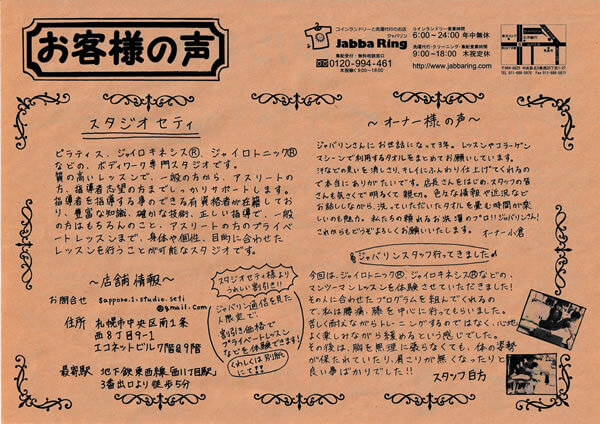 お客様の声
コインランドリーと洗濯代行のお店
ジャバリン
Jabba Ring
集配受付・無料相談窓口
0120-994-461
木祝除く9:00~18:00
コインランドリー営業時間
6:00~24:00 年中無休
洗濯代行・クリーニング・集配営業時間
9:00~18:00 木祝定休
http://www.jabbaring.com
スタジオ セティ
ピラティス、ジャイロキネシスⓇ、ジャイロトニックⓇ
などの、ボディワーク専門スタジオです。
質の高いレッスンで、一般の方から、アスリートの
方、指導者志望の方までしっかりサポートします。
指導者を指導する事のできる有資格者が在籍してお
り、豊富な知識、確かな技術、正しい指導で、一般
の方はもちろんのこと、アスリートの方のプライベ
ートレッスンまで、身体や個性、目的に合わせた
レッスンを行うことが可能なスタジオです。
~店舗情報~
お問合せ sapporo.1.studio.seti
@gmail.com
住所 札幌市中央区南1条
西8丁目9-1
エコネットビル7階&9階
最寄駅 地下鉄東西線「西11丁目駅」
3番出口より徒歩5分
スタジオセティ様より
うれしい割引き!!
ジャバリン通信を見た
ト限定で、
割引き価格で
プライベートレッスン
などを体験できます!
くわしくは別紙
にて!!
~オーナー様の声~
ジャバリンさんにお世話になって3年。レッスンやコラーゲン
マシーンで利用するタオルをまとめてお願いしています。
汗などの臭いを消しさり、キレイにふんわり仕上げてくれるの
で本当にありがたいです。店長さんをはじめ、スタッフの皆
さんも気さくで明るくて親切。色々な情報や近況など
お話ししながら、洗っていただいたタオルを畳む時間が楽
しいのも魅力。私たちの頼れるお洗濯のプロ!!ジャバリンさん!
これからもどうぞよろしくお願いいたします。 オーナー小倉
ジャバリンスタッフ行ってきました
今回は、ジャイロトニックⓇ、ジャイロキネシスⓇなどの、
マンツーマンレッスンを体験させていただきました!
その人に合わせたプログラムを組んでくれるの
で、私は腰痛、膝を中心に行ってもらいました。
苦しく耐えながらトレーニングするのではなく、心地
よく楽しみながら緩めるという感じでした。
その後は、胸を無理に張らなくても、体の姿勢
が保たれていたり、肩こりが無くなったりと
良い事ばかりでした!!
スタッフ 日方